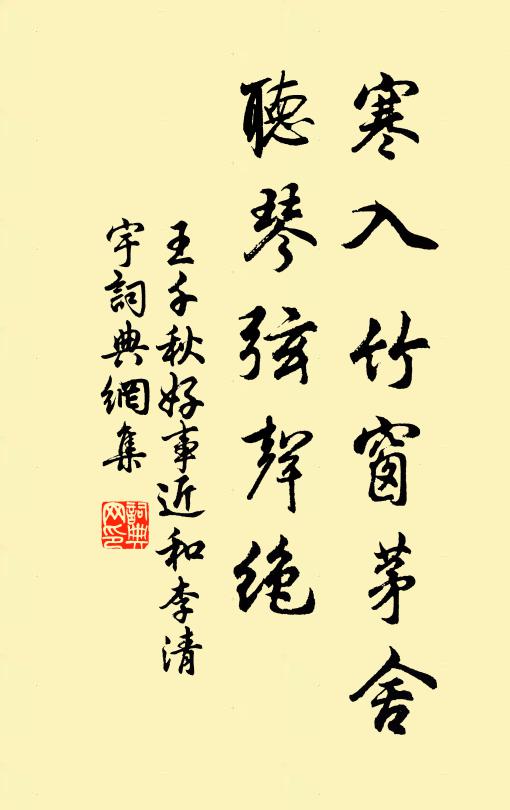 寒入竹窗茅舍
聽琴弦聲絶
王千秋好事近和李清
宇詞典網集
詞典
网印